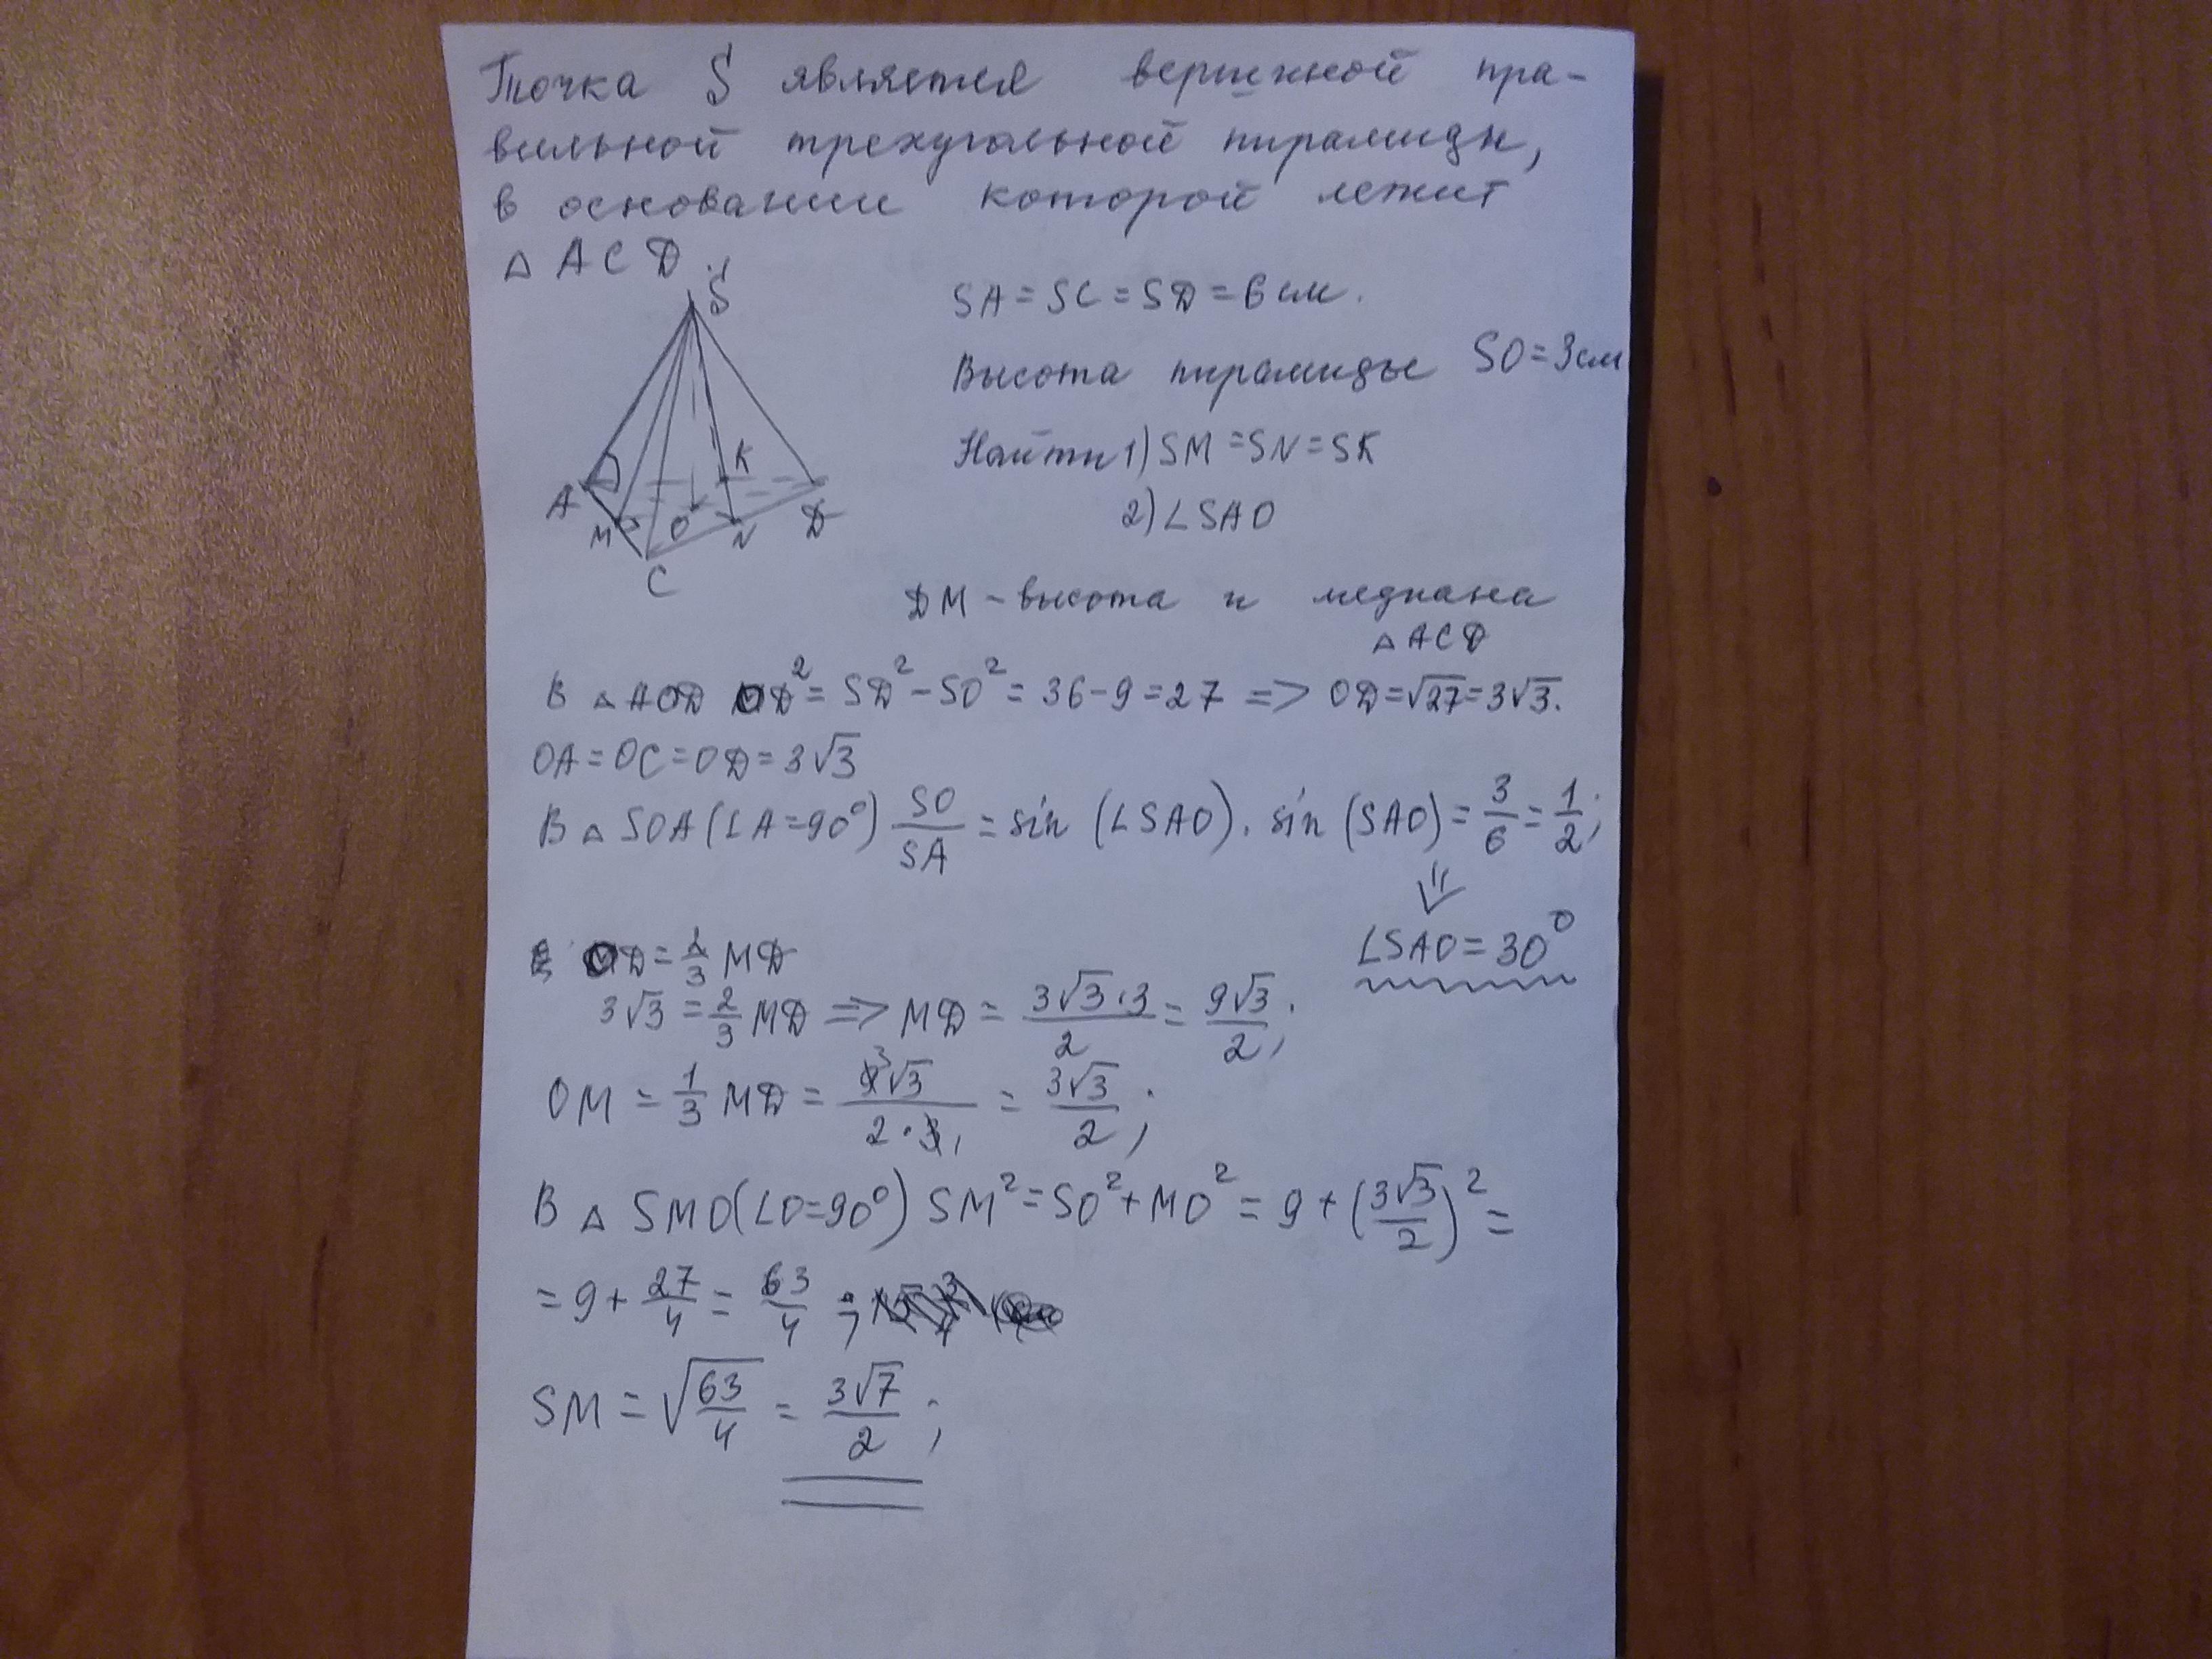 Точка S является вершиной пра-
вильной трехугольной пирамиды,
в основании которой лежит
△ ACD.
S
A
M
O
K
N
D
C
SA = SC = SD = 6 см.
Высота пирамиды SO = 3 см
Найти 1) SM = SN = SK
2) ∠SAO
DM – высота и медиана
△ ACD
В △ AOD OD² = SD² - SO² = 36 - 9 = 27 => OD = √27 = 3√3.
OA = OC = OD = 3√3
В △ SOA (∠A = 90°) SO/SA = sin (∠SAO). sin (SAO) = 3/6 = 1/2;
⇓
∠SAO = 30°
OD = 2/3 MD
3√3 = 2/3 MD => MD = 3√3·3/2 = 9√3/2;
OM = 1/3 MD = 9√3/2·3 = 3√3/2;
3
1
В △ SMO (∠O = 90°) SM² = SO² + MO² = 9 + (3√3/2)² =
= 9 + 27/4 = 63/4;
SM = √63/4 = 3√7/2;